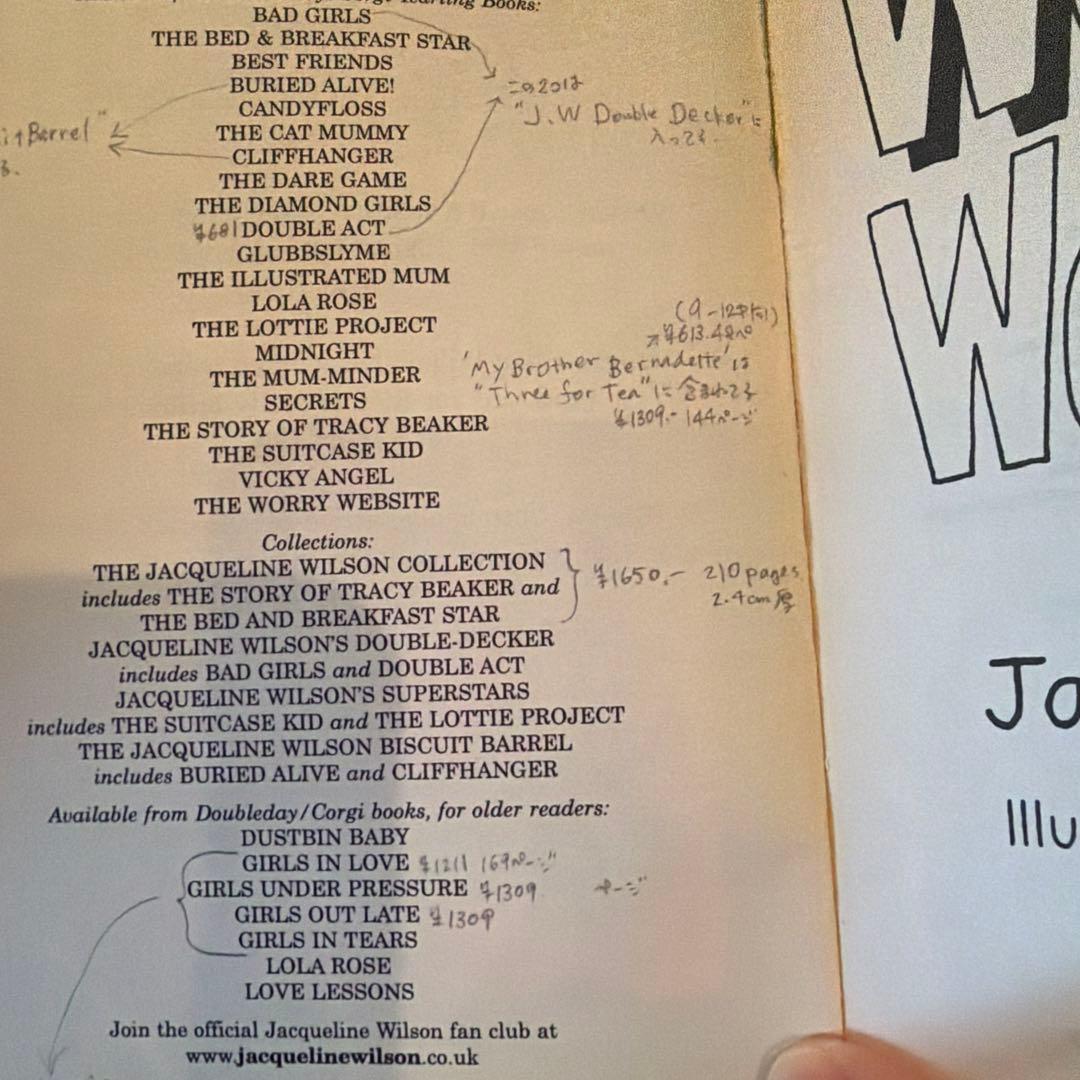 Books:
BAD GIRLS
THE BED & BREAKFAST STAR
BEST FRIENDS
BURIED ALIVE!
CANDYFLOSS
THE CAT MUMMY
CLIFFHANGER
THE DARE GAME
THE DIAMOND GIRLS
¥681 DOUBLE ACT
GLUBBSLYME
THE ILLUSTRATED MUM
LOLA ROSE
THE LOTTIE PROJECT
MIDNIGHT
THE MUM-MINDER
SECRETS
THE STORY OF TRACY BEAKER
THE SUITCASE KID
VICKY ANGEL
THE WORRY WEBSITE
この2つは
"J.W Double Decker"に
入ってる.
Barrel"
¥613.
'My Brother Bernadette'は
"Three for Tea"に含まれてる
¥1309.- 144ページ
Collections:
THE JACQUELINE WILSON COLLECTION
includes THE STORY OF TRACY BEAKER and
THE BED AND BREAKFAST STAR
¥1650.- 210 pages
2.4cm厚
JACQUELINE WILSON'S DOUBLE-DECKER
includes BAD GIRLS and DOUBLE ACT
JACQUELINE WILSON'S SUPERSTARS
includes THE SUITCASE KID and THE LOTTIE PROJECT
THE JACQUELINE WILSON BISCUIT BARREL
includes BURIED ALIVE and CLIFFHANGER
Available from Doubleday/Corgi books, for older readers:
DUSTBIN BABY
GIRLS IN LOVE ¥1211 169ページ
GIRLS UNDER PRESSURE ¥1309 ページ
GIRLS OUT LATE ¥1309
GIRLS IN TEARS
LOLA ROSE
LOVE LESSONS
Join the official Jacqueline Wilson fan club at
www.jacquelinewilson.co.uk
Ja
Illu